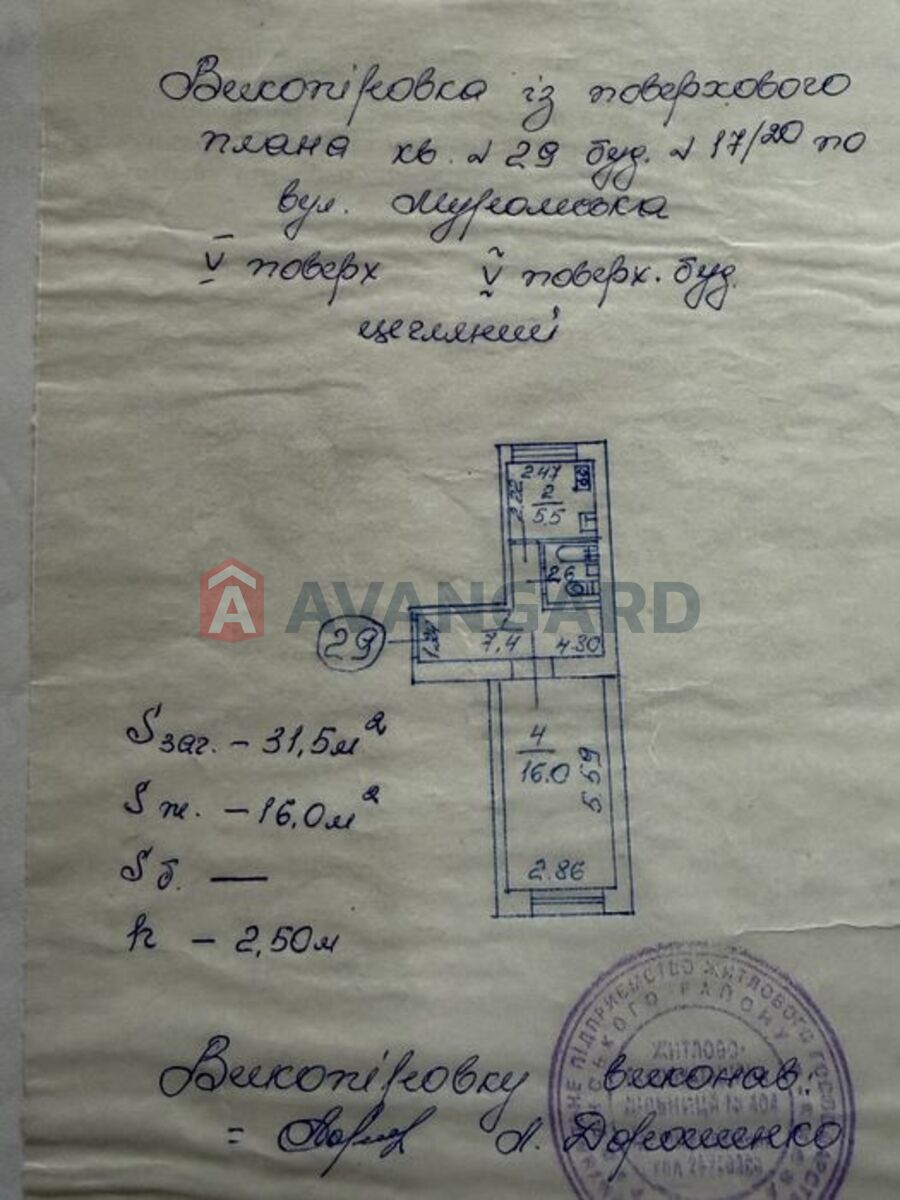 Викопіровка із поверхового
плана кв. № 29 буд. № 17/20 по
вул. Муромська
V поверх V поверх. буд.
цегляний
2.47
2.22
2
5.5
2.6
AVANGARD
29
1.24
7.4
4.30
Sзаг. – 31,5м²
4
16.0
5.59
Sж. – 16,0м²
2.86
Sб. —
h – 2,50м
ПІДПРИЄМСТВО ЖИТЛОВОГО
РАЙОНУ
ЖИТЛОВО-
Викопіровку виконав:
ДІЛЬНИЦЯ № 404
= Л. Дорошенко